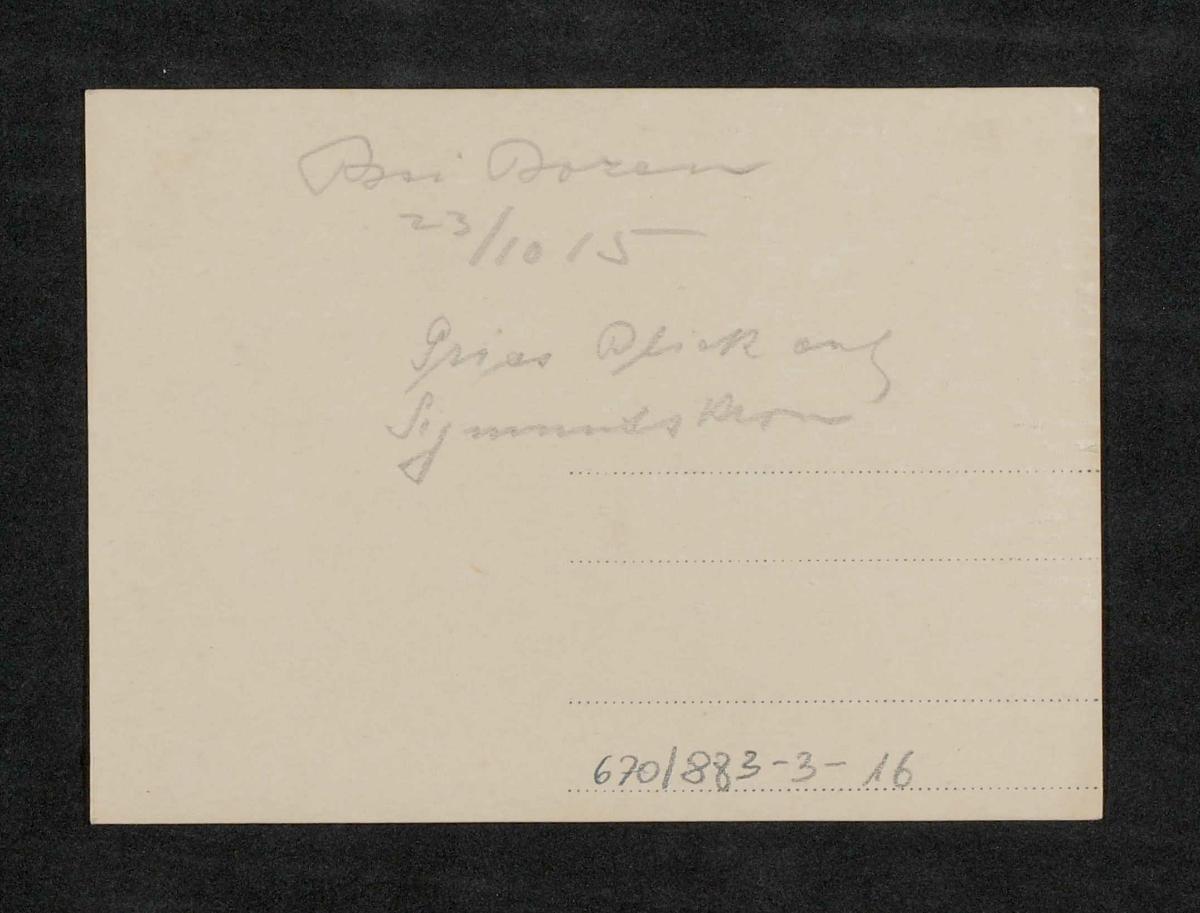 Bei Bozen
23/10 15
Gries Blick auf
Sigmundskron
670/883-3-16